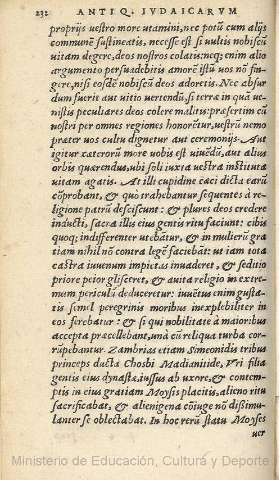 232 ANTIQ. IVDAICARVM
proprijs vestro more utamini, nec potũ cum alijs
communẽ sustineatis, necesse est si vultis nobiscũ
vitam degere, deos nostros colatis: neq; enim alio
argumento persuadebitis amorẽ istũ vos nõ fin-
gere, nisi eosdẽ nobiscũ deos adoretis. Nec absur
dum fuerit aut vitio vertendũ, si terrae in quã ve-
nistis peculiares deos colere malitis: praesertim cũ
nostri per omnes regiones honorẽtur, vestrũ nemo
praeter vos cultu dignetur aut ceremonijs. Aut
igitur caeterorũ more vobis est viuẽdũ, aut alius
orbis quaerendus, vbi soli iuxta vestra instituta
vitam agatis. At illi cupidine caeci dicta earũ
cõprobant, & quò trahebantur sequentes à re-
ligione patrũ desciscunt: & plures deos credere
inducti, sacra illis eius gentis ritu faciunt: cibis
quoq; indifferenter utebãtur, & in mulierũ gra
tiam nihil nõ contra legẽ faciebãt: ut iam tota
castra iuuenum impietas inuaderet, & seditio
priore peior glisceret, & auita religio in extre-
mum periculũ deduceretur: iuuẽtus enim gusta-
tis semel peregrinis moribus inexplebiliter in
eos ferebatur: & si qui nobilitate à maioribus
accepta praecellebant, unà cũ reliqua turba cor-
rũpebantur. Zambrias etiam Simeonidis tribus
princeps ducta Chosbi Madianitide, Vri filia
gentis eius dynastae, iussus ab uxore, & contem-
ptis in eius gratiam Moysis placitis, alieno ritu
sacrificabat, & alienigena cõiuge nõ dißimu-
lanter se oblectabat. In hoc rerũ statu Moyses
uer
Ministerio de Educación, Cultura y Deporte